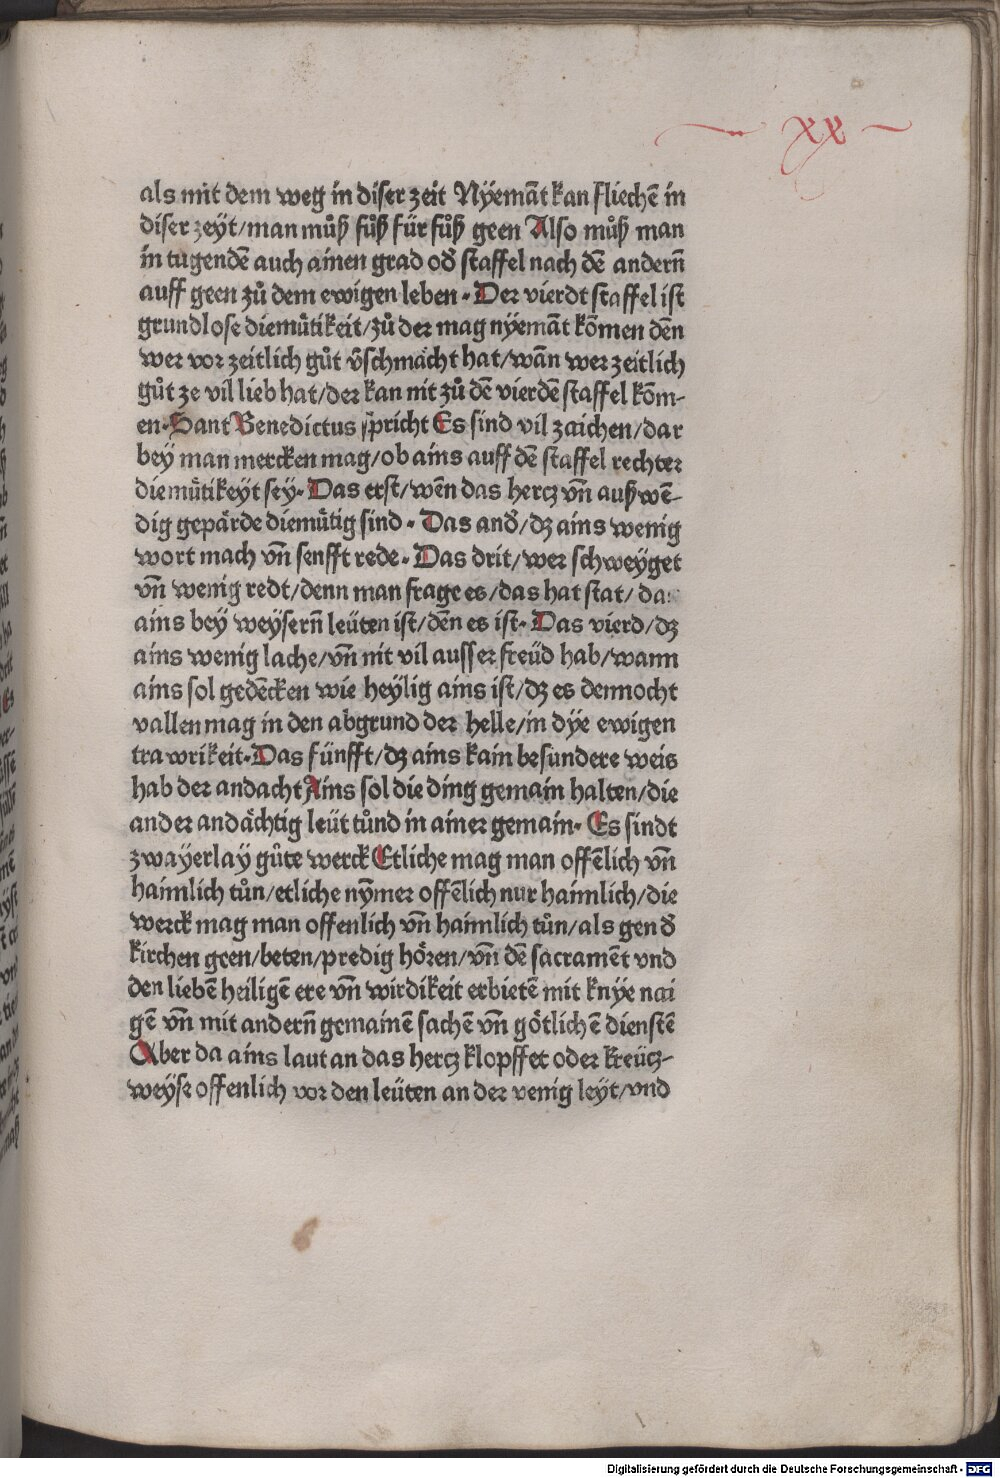 xx
als mit dem weg in diser zeit Nÿemãt kan fliechẽ in
diser zeyt/man můß fůß für fůß geen Also můß man
in tugendẽ auch ainen grad od̉ staffel nach dẽ andern̄
auff geen zů dem ewigen leben. Der vierdt staffel ist
grundlose diemůtikeit/zů der mag nÿemãt kõmen dẽn
wer vor zeitlich gůt v̉schmächt hat/wãn wer zeitlich
gůt ze vil lieb hat/der kan nit zů dẽ vierdẽ staffel kõm-
en. Sant Benedictus spricht Es sind vil zaichen/dar
bey man mercken mag/ob ains auff dẽ staffel rechter
diemůtikeyt sey. Das erst/wẽn das hercz vñ außwẽ-
dig gepärde diemůtig sind. Das and̉/dz ains wenig
wort mach vñ senfft rede. Das drit/wer schweyget
vñ wenig redt/denn man frage es/das hat stat/ da
ains bey weysern̄ leüten ist/dẽn es ist. Das vierd/dz
ains wenig lache/vñ nit vil ausser freüd hab/wann
ains sol gedẽcken wie heylig ains ist/dz es dennocht
vallen mag in den abgrund der helle/in dÿe ewigen
trawrikeit. Das fünfft/dz ains kain besundere weis
hab der andacht Ains sol die ding gemain halten/die
ander andächtig leüt tůnd in ainer gemain. Es sindt
zwayerlay gůte werck Etliche mag man offẽlich vñ
haimlich tůn/etliche nÿmer offẽlich nur haimlich/die
werck mag man offenlich vñ haimlich tůn/als gen d̉
kirchen geen/beten/predig hören/vñ dẽ sacramẽt vnd
den liebẽ heiligẽ ere vñ wirdikeit erbietẽ mit knÿe nai
gẽ vñ mit andern̄ gemainẽ sachẽ vñ götlichẽ dienstẽ
Aber da ains laut an das hercz klopffet oder kreücz-
weyse offenlich vor den leüten an der venig leyt/vnd
Digitalisierung gefördert durch die Deutsche Forschungsgemeinschaft - DFG